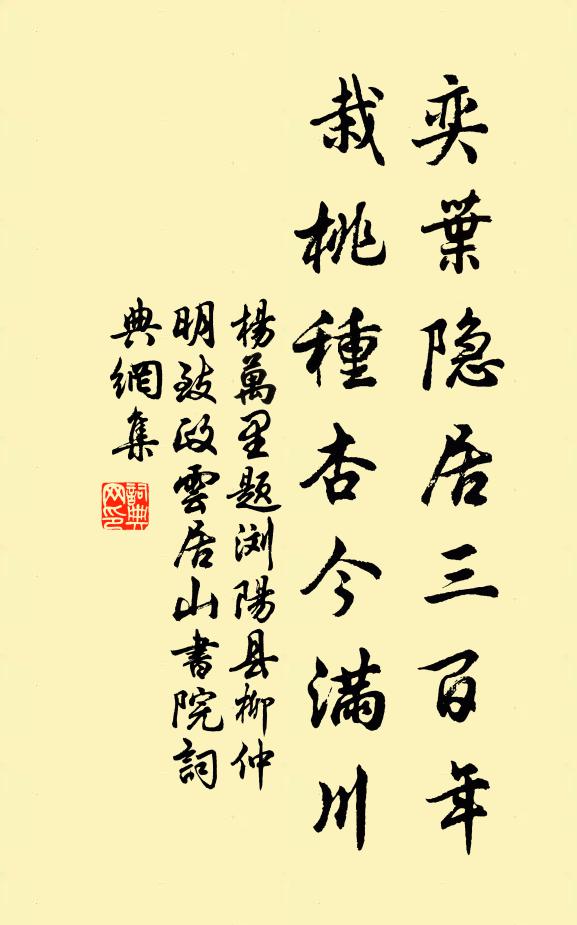 奕葉隐居三百年
栽桃種杏今滿川
楊萬里题浏陽县柳仲
明致政雲居山書院詞
典網集
詞典
网印